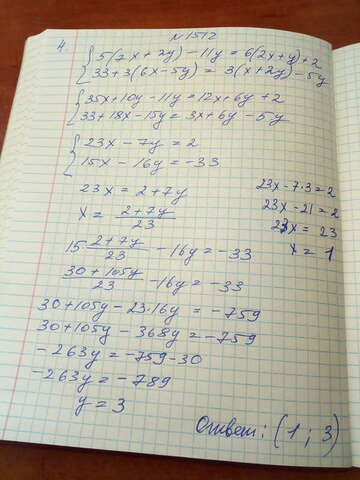 №1512
4.
5(7x+2y)-11y=6(2x+y)+2
33+3(6x-5y)=3(x+2y)-5y
35x+10y-11y=12x+6y+2
33+18x-15y=3x+6y-5y
23x-7y=2
15x-16y=-33
23x=2+7y
x=\frac{2+7y}{23}
15\frac{2+7y}{23}-16y=-33
\frac{30+105y}{23}-16y=-33
30+105y-23·16y=-759
30+105y-368y=-759
-263y=-759-30
-263y=-789
y=3
23x-7·3=2
23x-21=2
23x=23
x=1
Ответ: (1;3)